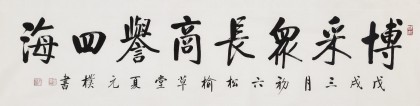 博采衆長商譽四海
戊戌三月初六松榆草堂夏元樸書